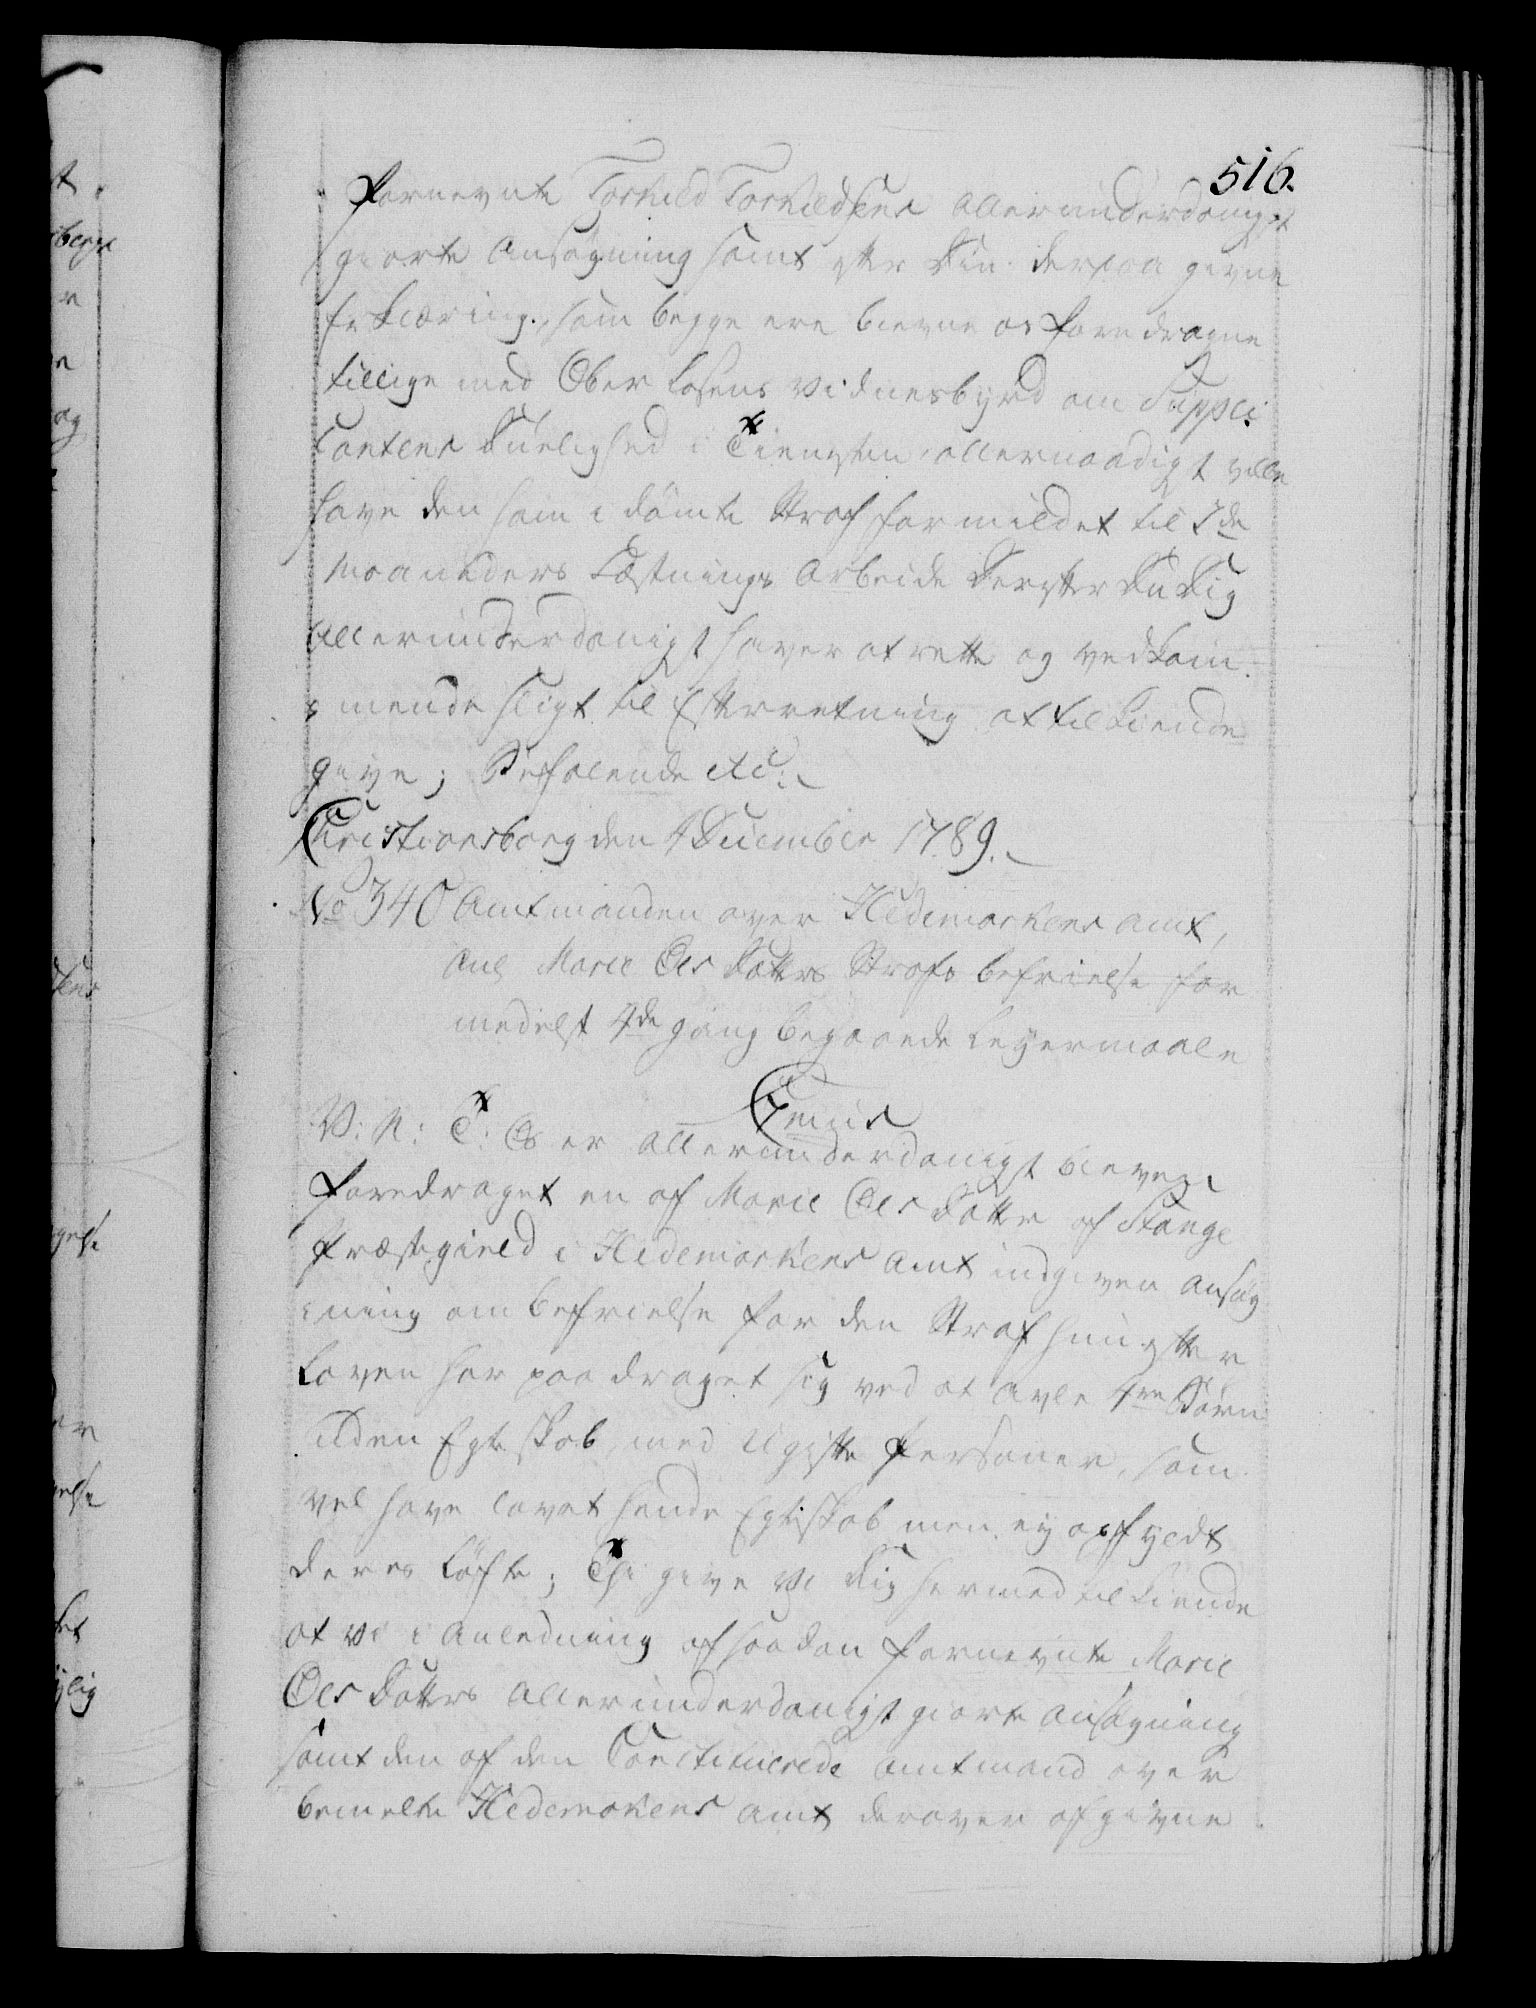 516.
Fornevnte Torkild Torkildsens Allerunderdanigst
giorte Ansøgning samt efter Din derpaa givne
Erklæring, som begge ere blevne os foredragne
tillige med Ober Losens Vidnesbyrd om Suppli¬
cantens Duelighed i Tienesten, allernaadigst ville
have den ham i dømte Straf formildet til 2de
Maaneders Fæstnings Arbeide Derefter Du Dig
Allerunderdanigst haver at rette og vedkom¬
mende sligt til Efterretning at tilkiende
give; Befalende etc:
Christiansborg den 4 December 1789.
No 340 Amtmanden over Hedemarkens Amt,
Anl Marie Ols Datters Straffs befrielse for
medelst 4de gang begaaede Leyermaale
C 7mus
V: A: T: Os er Allerunderdanigst bleven
foredraget en af Marie Ols Datter af Stange
Præstegield i Hedemarkens Amt indgiven Ansøg
ning om befrielse for den Straf hun efter
Loven har paadraget sig ved at avle 4re Børn
uden Egteskab, med Ugifte Personer, som
vel have lovet hende Egteskab men ey opfyldt
deres Løfte; Thi give Vi Dig hermed tilkiende
at Vi i Anledning af saadan fornevnte Marie
Ols Datters Allerunderdanigst giorte Ansøgning
samt den af den Constituerede Amtmand over
bemelte Hedemakens Amt derover afgivne